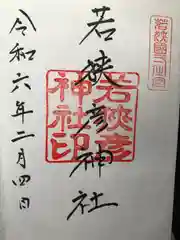 若狭國一之宮
若狭彦神社
若狭彦
神社印
令和六年二月四日